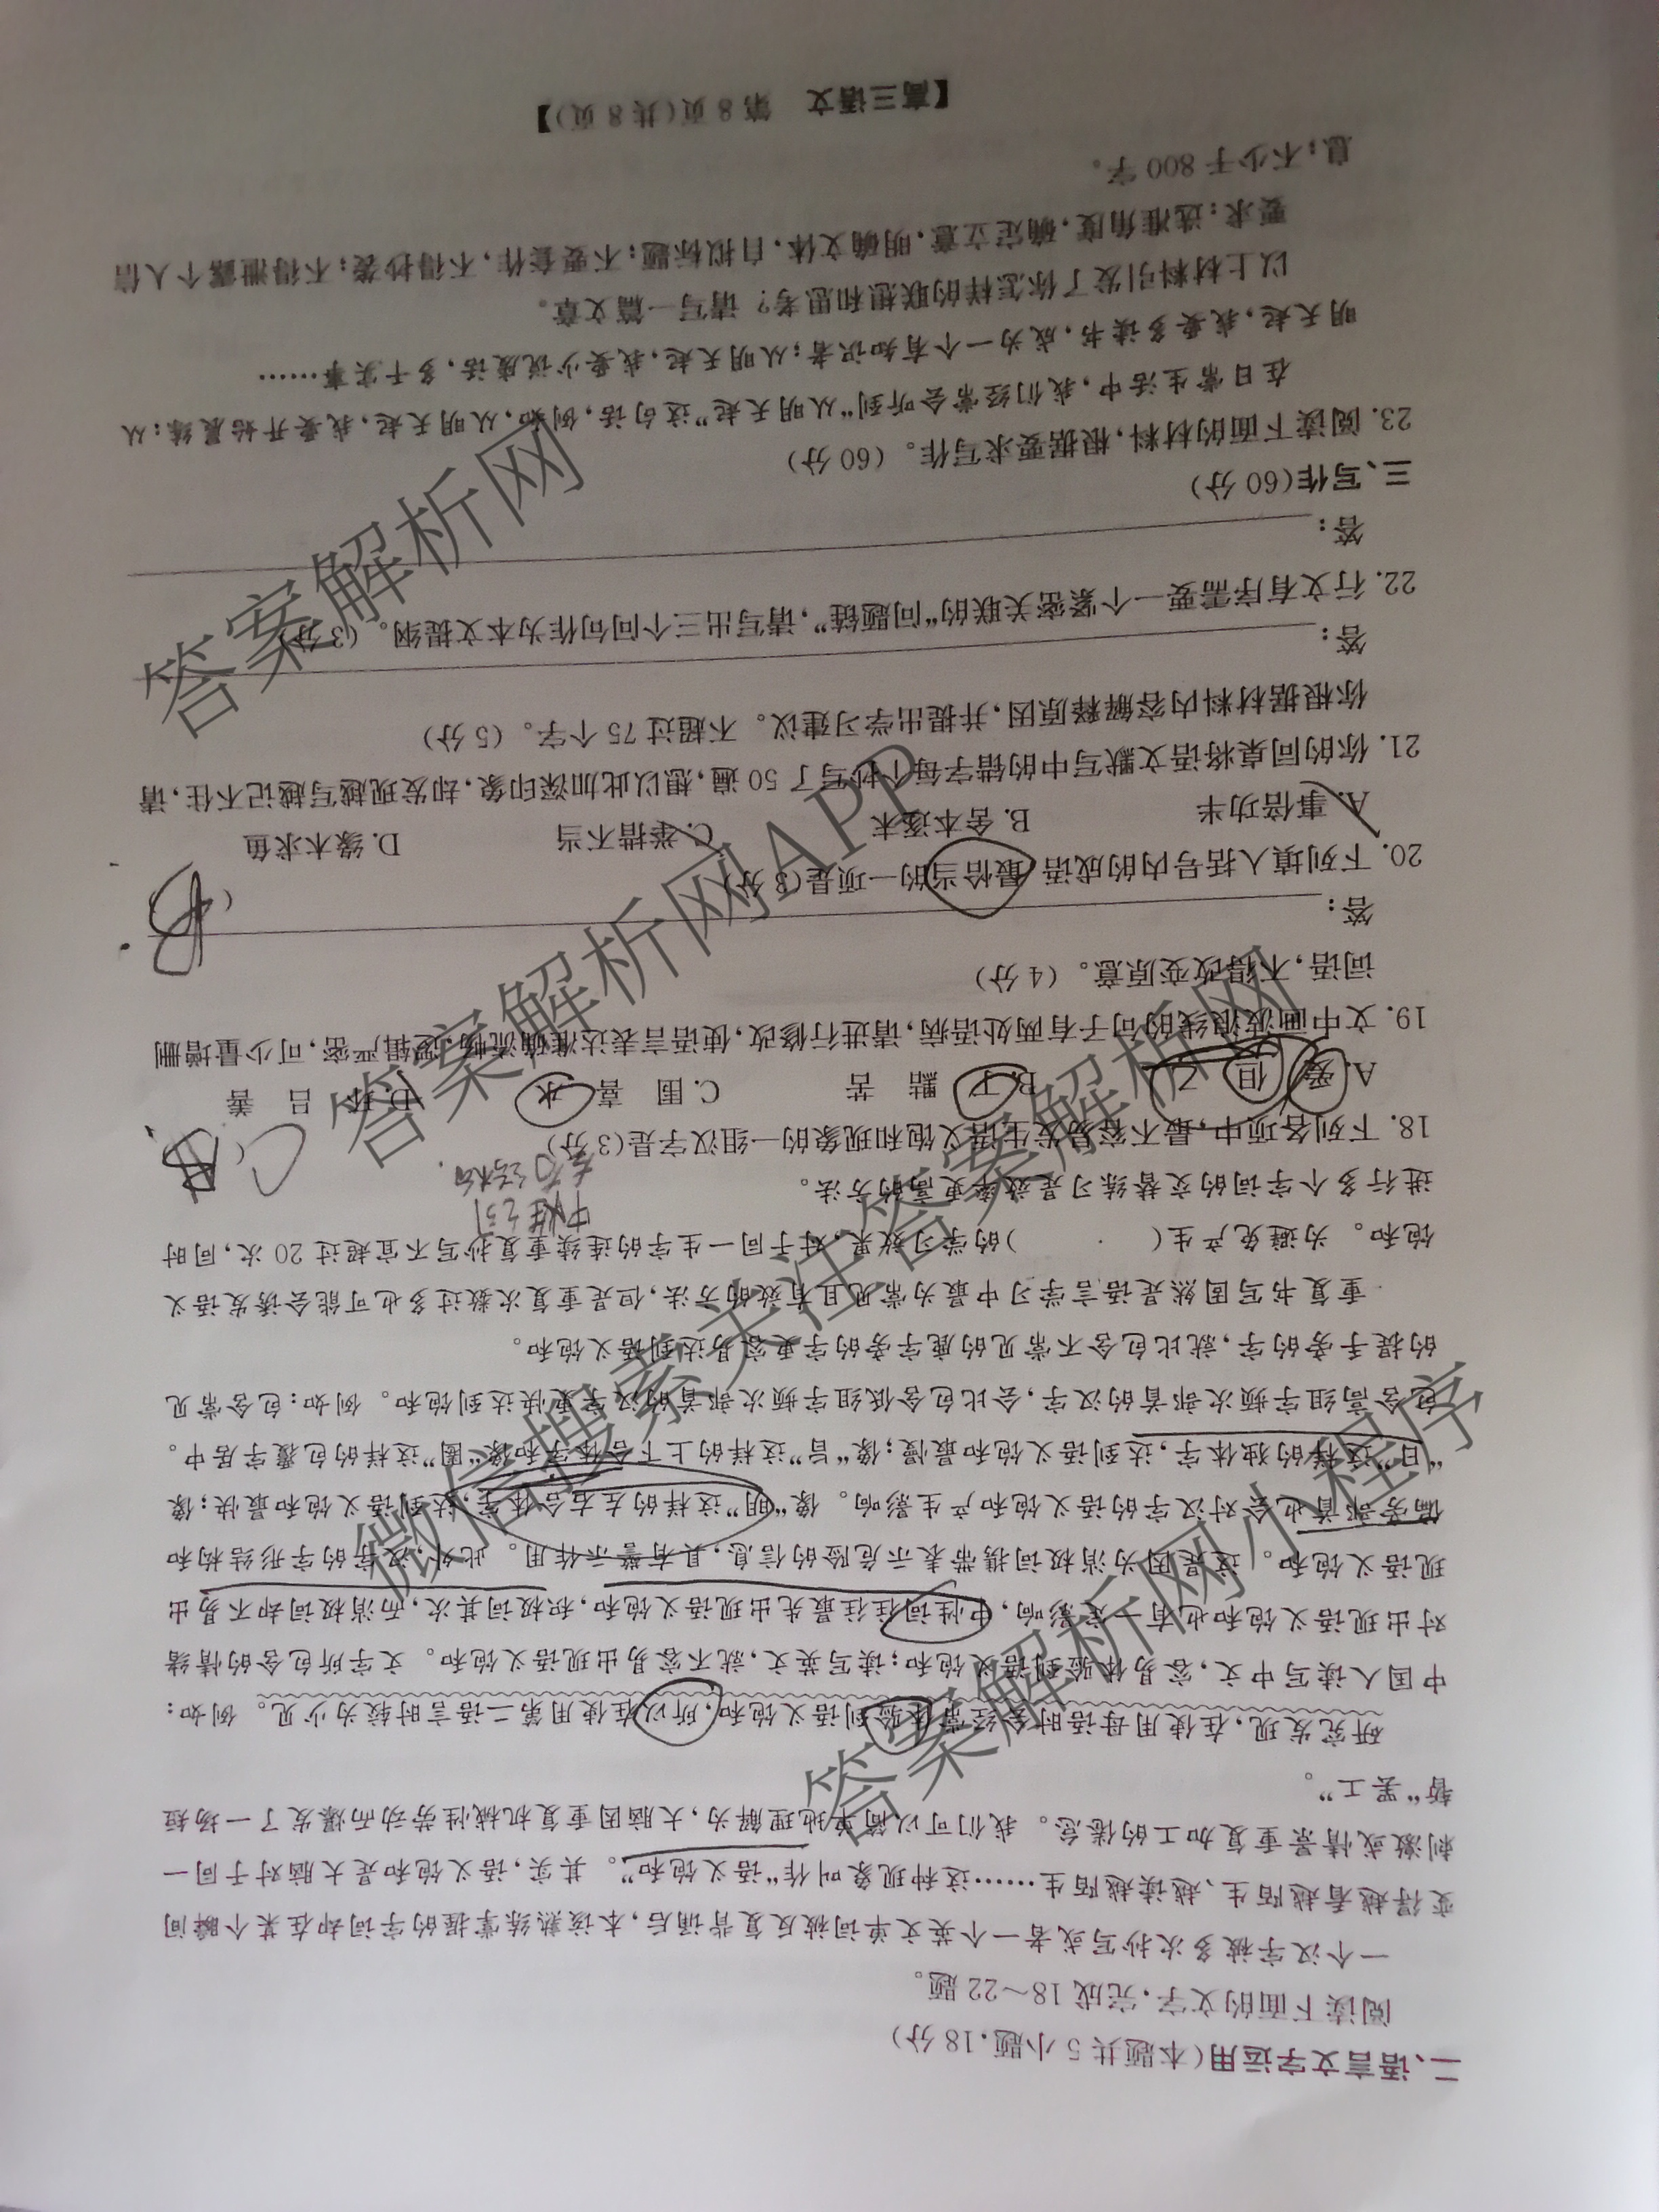 二、语言文字运用(本题共5小题,18分)
阅读下面的文字,完成18~22题。
一个汉字被多次抄写或者一个英文单词被反复背诵后,本该熟练掌握的字词却在某个瞬间
变得越看越陌生、越读越陌生……这种现象叫作“语义饱和”。其实,语义饱和是大脑对于同一
刺激或情景重复加工的倦怠。我们可以简单地理解为,大脑因重复机械性劳动而爆发了一场短
暂“罢工”。
研究发现,在使用母语时会经常体验到语义饱和,所以在使用第二语言时较为少见。例如:
中国人读写中文,容易体验到语义饱和;读写英文,就不容易出现语义饱和。文字所包含的情绪
对出现语义饱和也有一定影响,中性词往往最先出现语义饱和,积极词其次,而消极词却不易出
现语义饱和。这是因为消极词携带表示危险的信息,具有警示作用。此外,汉字的字形结构和
偏旁部首也会对汉字的语义饱和产生影响。像“明”这样的左右合体字,达到语义饱和最快;像
“日”这样的独体字,达到语义饱和最慢;像“旨”这样的上下合体字和像“圆”这样的包覆字居中。
包含高组字频次部首的汉字,会比包含低组字频次部首的汉字更快达到饱和。例如:包含常见
的提手旁的字,就比包含不常见的鹿字旁的字更容易达到语义饱和。
重复书写固然是语言学习中最为常见且有效的方法,但是重复次数过多也可能会诱发语义
饱和。为避免产生( )的学习效果,对于同一生字的连续重复抄写不宜超过20次,同时
进行多个字词的交替练习是效率更高的方法。
中性词
左右结构
18. 下列各项中,最不容易发生语义饱和现象的一组汉字是(3分) ( )
A. 爱 但 乙 B. 丁 黯 苦 C. 围 喜 水 D. 吕 善
19. 文中画波浪线的句子有两处语病,请进行修改,使语言表达准确流畅,逻辑严密,可少量增删
词语,不得改变原意。(4分)
答:
20. 下列填入括号内的成语,最恰当的一项是(3分) ( )
A. 事倍功半 B. 舍本逐末 C. 举措不当 D. 缘木求鱼
21. 你的同桌将语文默写中的错字每个抄写了50遍,想以此加深印象,却发现越写越记不住,请
你根据材料内容解释原因,并提出学习建议。不超过75个字。(5分)
答:
22. 行文有序需要一个紧密关联的“问题链”,请写出三个问句作为本文提纲。(3分)
答:
三、写作(60分)
23. 阅读下面的材料,根据要求写作。(60分)
在日常生活中,我们经常会听到“从明天起”这句话,例如,从明天起,我要开始晨练;从
明天起,我要多读书,成为一个有知识者;从明天起,我要少说废话,多干实事……
以上材料引发了你怎样的联想和思考?请写一篇文章。
要求:选准角度,确定立意,明确文体,自拟标题;不要套作,不得抄袭;不得泄露个人信
息;不少于800字。
【高三语文 第8页(共8页)】
答案解析网
微信搜索关注答案解析网
答案解析网APP
答案解析网小程序